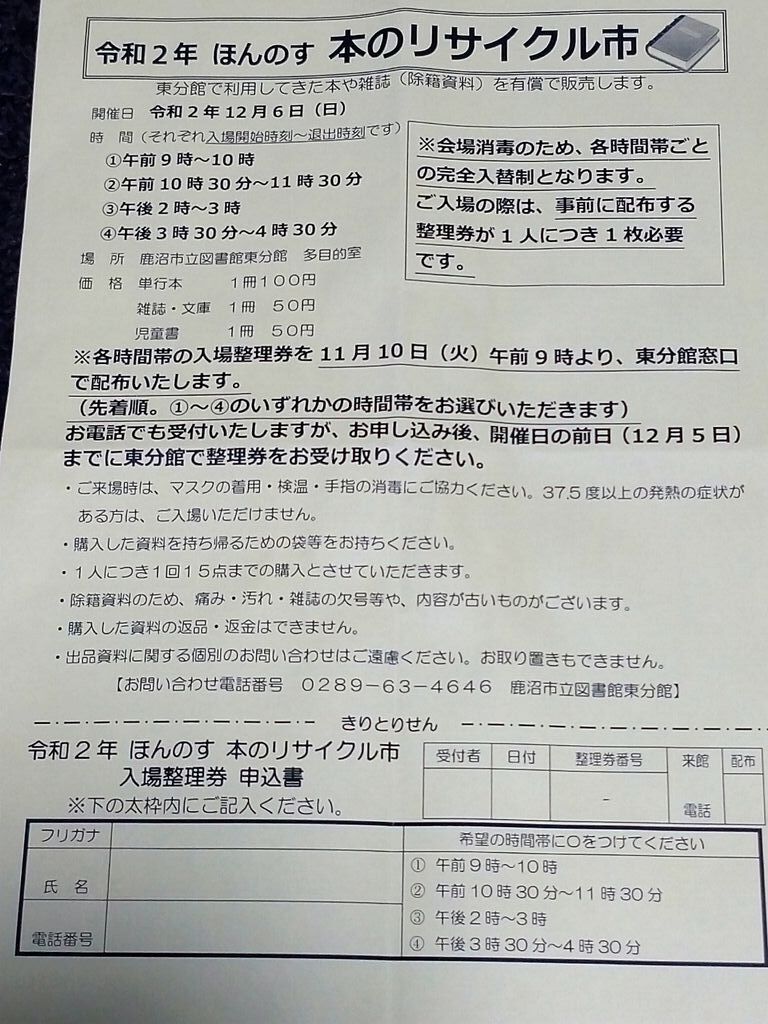 令和２年 ほんのす 本のリサイクル市
東分館で利用してきた本や雑誌（除籍資料）を有償で販売します。
開催日　令和２年１２月６日（日）
時　間（それぞれ入場開始時刻～退出時刻です）
①午前９時～１０時
②午前１０時３０分～１１時３０分
③午後２時～３時
④午後３時３０分～４時３０分
※会場消毒のため、各時間帯ごと
の完全入替制となります。
ご入場の際は、事前に配布する
整理券が１人につき１枚必要
です。
場　所　鹿沼市立図書館東分館　多目的室
価　格　単行本　１冊１００円
雑誌・文庫　１冊　５０円
児童書　１冊　５０円
※各時間帯の入場整理券を１１月１０日（火）午前９時より、東分館窓口
で配布いたします。
（先着順。①～④のいずれかの時間帯をお選びいただきます）
お電話でも受付いたしますが、お申し込み後、開催日の前日（１２月５日）
までに東分館で整理券をお受け取りください。
・ご来場時は、マスクの着用・検温・手指の消毒にご協力ください。37.5 度以上の発熱の症状が
ある方は、ご入場いただけません。
・購入した資料を持ち帰るための袋等をお持ちください。
・１人につき１回１５点までの購入とさせていただきます。
・除籍資料のため、痛み・汚れ・雑誌の欠号等や、内容が古いものがございます。
・購入した資料の返品・返金はできません。
・出品資料に関する個別のお問い合わせはご遠慮ください。お取り置きもできません。
【お問い合わせ電話番号　０２８９－６３－４６４６　鹿沼市立図書館東分館】
きりとりせん
令和２年 ほんのす 本のリサイクル市
入場整理券 申込書
※下の太枠内にご記入ください。
受付者　日付　整理券番号　来館　配布
－　電話
フリガナ
氏　名
電話番号
希望の時間帯に○をつけてください
①　午前９時～１０時
②　午前１０時３０分～１１時３０分
③　午後２時～３時
④　午後３時３０分～４時３０分